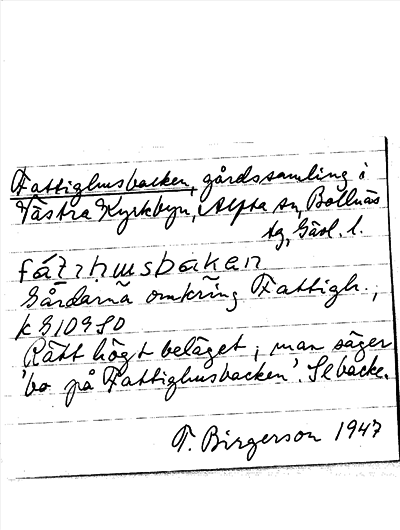 Fattighusbacken, gårdssamling i
Västra Kyrkbyn, Alfta sn, Bollnäs
tg, Gävl. l.
fátıhusbaken
Gårdarna omkring Fattigh.,
k G109S0
Rätt högt beläget; man säger
'bo på Fattighusbacken'. Se backe.
T. Birgerson 1947